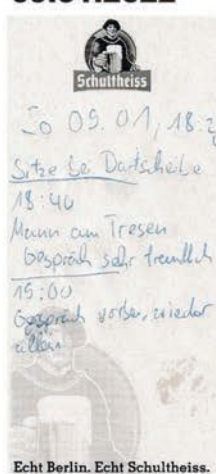 Schultheiss
So 09.01, 18:
Sitze bei Dartscheibe
18:40
Mann am Tresen
Gespräch sehr freundlich
19:00
Gespräch vorbei, wieder
allein
Echt Berlin. Echt Schultheiss.